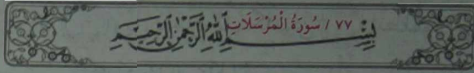 ٧٧ / سُورَةُ الْمُرْسَلَاتِ
بِسْمِ اللَّهِ الرَّحْمَٰنِ الرَّحِيمِ